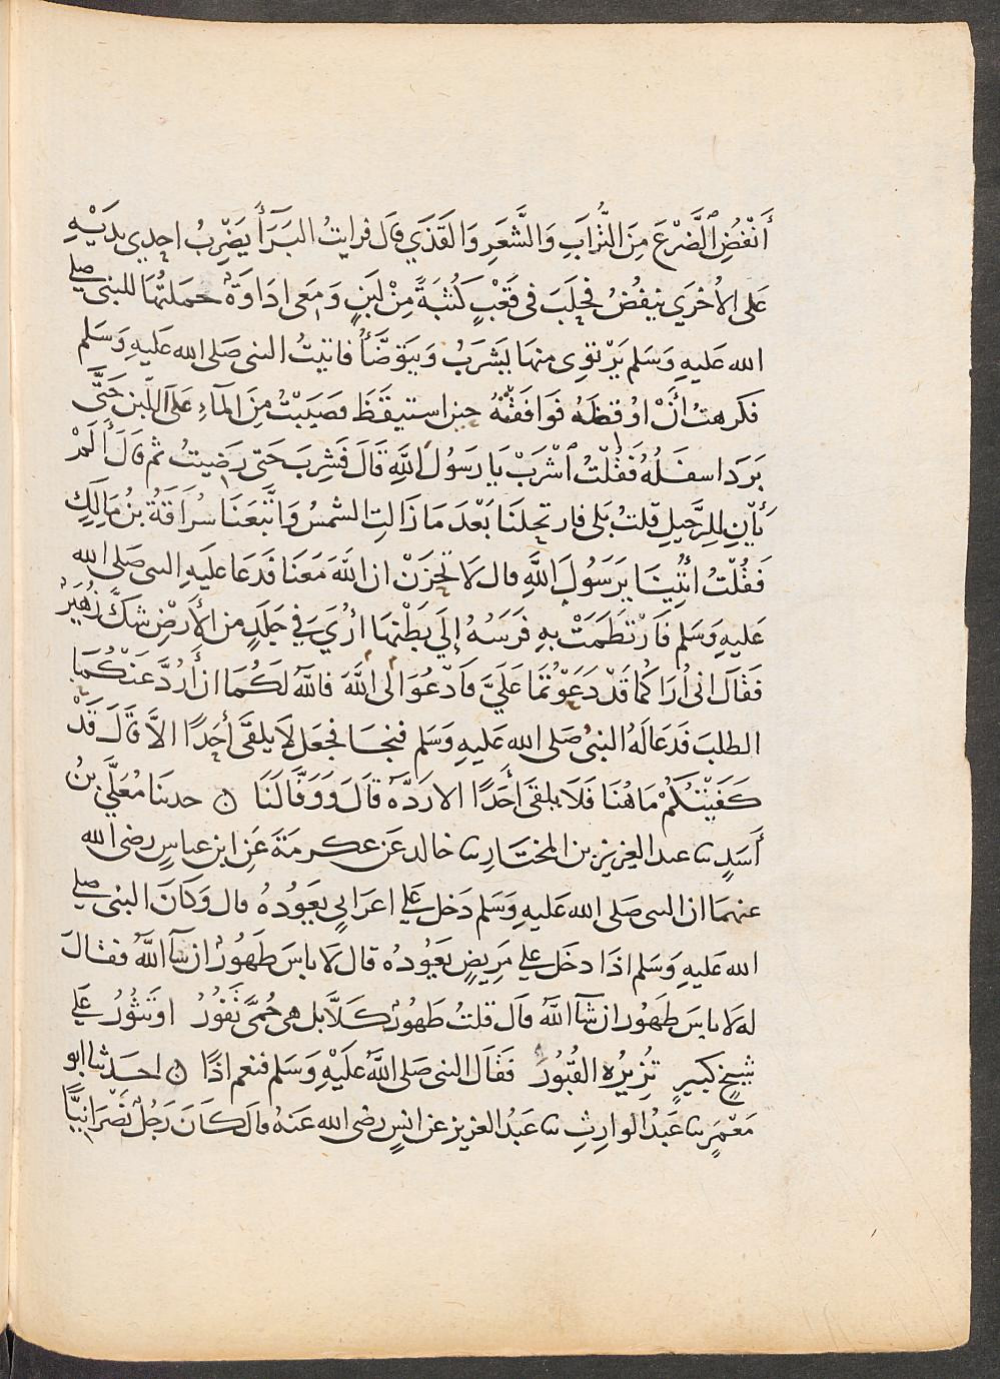 أَنْفُضِ الضَّرْعَ مِنَ التُّرَابِ وَالشَّعَرِ وَالقَذَي قال فرايتُ البَرَآَ يَضْرِبُ احدي يَدَيْهِ
عَلى الأخْرَي يَنفُضُ فحَلَبَ فى قَعْبٍ كُثْبَةً مِنْ لبَنٍ وَمَعى ادَاوَةٌ حَمَلتُهَا للنبى صلى
الله عَليهِ وَسَلم يَرْتوِى منهَا يَشرَبُ وَيَتَوَضَّأُ فاتيتُ النبى صَلى الله عَليهِ وَسَلم
فكرهتُ أَنْ اوُقظَهُ فَوَافَقتُهُ حين استيقَظَ فصَبَبْتُ مِنَ المآءِ عَلى اللَبن حَتَّى
بَرَدَ اسفَلُهُ فَقُلْتُ اشْرَبْ يَا رَسُولَ اللهِ قَالَ فَشَرِبَ حَتى رَضِيتُ ثم قَالَ أَلَمْ
يَأْنِ لِلرَّحِيلِ قلتُ بَلى فارتحلنَا بَعْدَ مَا زَالتِ الشمسُ وَاتَّبَعَنَا سُرَاقَةُ بنُ مَالِكٍ
فَقُلْتُ اُتُيِنَا يَرَسُولَ اللهِ قال لَا تَحْزَنْ ان اللهَ مَعَنَا فَدَعَا عَلَيهِ النبى صَلى الله
عَليهِ وَسَلم فَارْتطَمَتْ بِهِ فَرَسُهُ إِلَي بَطْنهَا اُرْيَ فِي جَلَدٍ من الأَرْضِ شكَّ زُهَيرٌ
فَقَالَ انى اُرَاكُما قَدْ دَعَوْتُمَا عَلَيَّ فادْعُوَا لى اللهَ فاللهُ لَكُمَا ان أَرُدَّ عَنْكُمَا
الطلبَ فَدَعَا لَهُ النبىُ صَلى الله عَليهِ وَسَلم فنجَا فجعَل لَا يلقَى أَحَدًا الاَّ قَالَ قَدْ
كَفَيْتُكُمْ مَا هُنَا فَلَا يَلقَى أَحَدًا الا رَدَّهُ قَالَ وَوَفَّا لَنَا ن حدثنا مُعَلَّي بنُ
أَسَدٍ ثنا عبد العزيز بن المختَارِ ثنا خالد عَن عكرمَةَ عَنِ ابن عباسٍ رضى الله
عنهمَا ان النبى صَلى الله عَليهِ وَسَلم دَخل علي اعرَابيٍ يعَوُدُهُ قال وَكَانَ النبى صلى
الله عَليهِ وَسَلم اذَا دخَل علي مَرِيضٍ يَعُودُه قال لَا باسَ طَهُورٌ ان شآ اللهُ فقالَ
له لا باسَ طَهُور ان شآ اللهُ قال قلتُ طَهُورٌ كَلاَّ بل هى حُمَّي تَفُورُ اوتَثُورُ عَلي
شيخٍ كبيرٍ تُزِيرُه القُبُورَ فَقَال النبى صَلى اللهُ عَلَيْهِ وَسَلم فنعم اذًا ن احدثنا ابو
مَعْمَرٍ ثنا عَبدُ الوارِثِ ثنا عَبدُ العزيز عن انسٍ رضى الله عَنهُ قال كَانَ رَجُلٌ نَصْرَانِيًّا